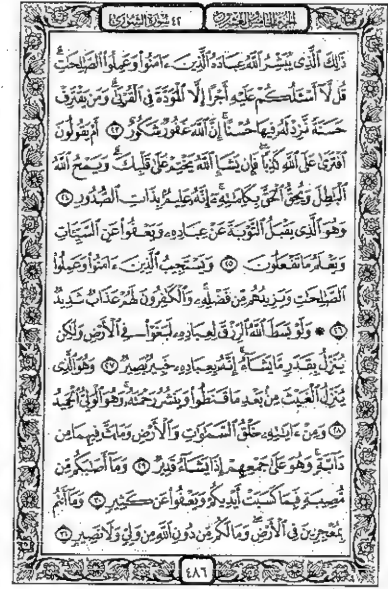 الجزء الخامس والعشرون ٤٢ سورة الشورى
ذَٰلِكَ الَّذِي يُبَشِّرُ اللَّهُ عِبَادَهُ الَّذِينَ ءَامَنُوا وَعَمِلُوا الصَّالِحَاتِ ۗ
قُل لَّا أَسْـَٔلُكُمْ عَلَيْهِ أَجْرًا إِلَّا الْمَوَدَّةَ فِي الْقُرْبَىٰ ۗ وَمَن يَقْتَرِفْ
حَسَنَةً نَّزِدْ لَهُ فِيهَا حُسْنًا ۚ إِنَّ اللَّهَ غَفُورٌ شَكُورٌ ٢٣ أَمْ يَقُولُونَ
افْتَرَىٰ عَلَى اللَّهِ كَذِبًا ۖ فَإِن يَشَإِ اللَّهُ يَخْتِمْ عَلَىٰ قَلْبِكَ ۗ وَيَمْحُ اللَّهُ
الْبَاطِلَ وَيُحِقُّ الْحَقَّ بِكَلِمَاتِهِ ۚ إِنَّهُ عَلِيمٌ بِذَاتِ الصُّدُورِ ٢٤
وَهُوَ الَّذِي يَقْبَلُ التَّوْبَةَ عَنْ عِبَادِهِ وَيَعْفُوا عَنِ السَّيِّـَٔاتِ
وَيَعْلَمُ مَا تَفْعَلُونَ ٢٥ وَيَسْتَجِيبُ الَّذِينَ ءَامَنُوا وَعَمِلُوا
الصَّالِحَاتِ وَيَزِيدُهُم مِّن فَضْلِهِ ۚ وَالْكَافِرُونَ لَهُمْ عَذَابٌ شَدِيدٌ
٢٦ ۞ وَلَوْ بَسَطَ اللَّهُ الرِّزْقَ لِعِبَادِهِ لَبَغَوْا فِي الْأَرْضِ وَلَٰكِن
يُنَزِّلُ بِقَدَرٍ مَّا يَشَاءُ ۚ إِنَّهُ بِعِبَادِهِ خَبِيرٌ بَصِيرٌ ٢٧ وَهُوَ الَّذِي
يُنَزِّلُ الْغَيْثَ مِن بَعْدِ مَا قَنَطُوا وَيَنشُرُ رَحْمَتَهُ ۚ وَهُوَ الْوَلِيُّ الْحَمِيدُ
٢٨ وَمِنْ ءَايَاتِهِ خَلْقُ السَّمَاوَاتِ وَالْأَرْضِ وَمَا بَثَّ فِيهِمَا مِن
دَابَّةٍ ۚ وَهُوَ عَلَىٰ جَمْعِهِمْ إِذَا يَشَاءُ قَدِيرٌ ٢٩ وَمَا أَصَابَكُم مِّن
مُّصِيبَةٍ فَبِمَا كَسَبَتْ أَيْدِيكُمْ وَيَعْفُوا عَن كَثِيرٍ ٣٠ وَمَا أَنتُم
بِمُعْجِزِينَ فِي الْأَرْضِ ۖ وَمَا لَكُم مِّن دُونِ اللَّهِ مِن وَلِيٍّ وَلَا نَصِيرٍ ٣١
٤٨٦